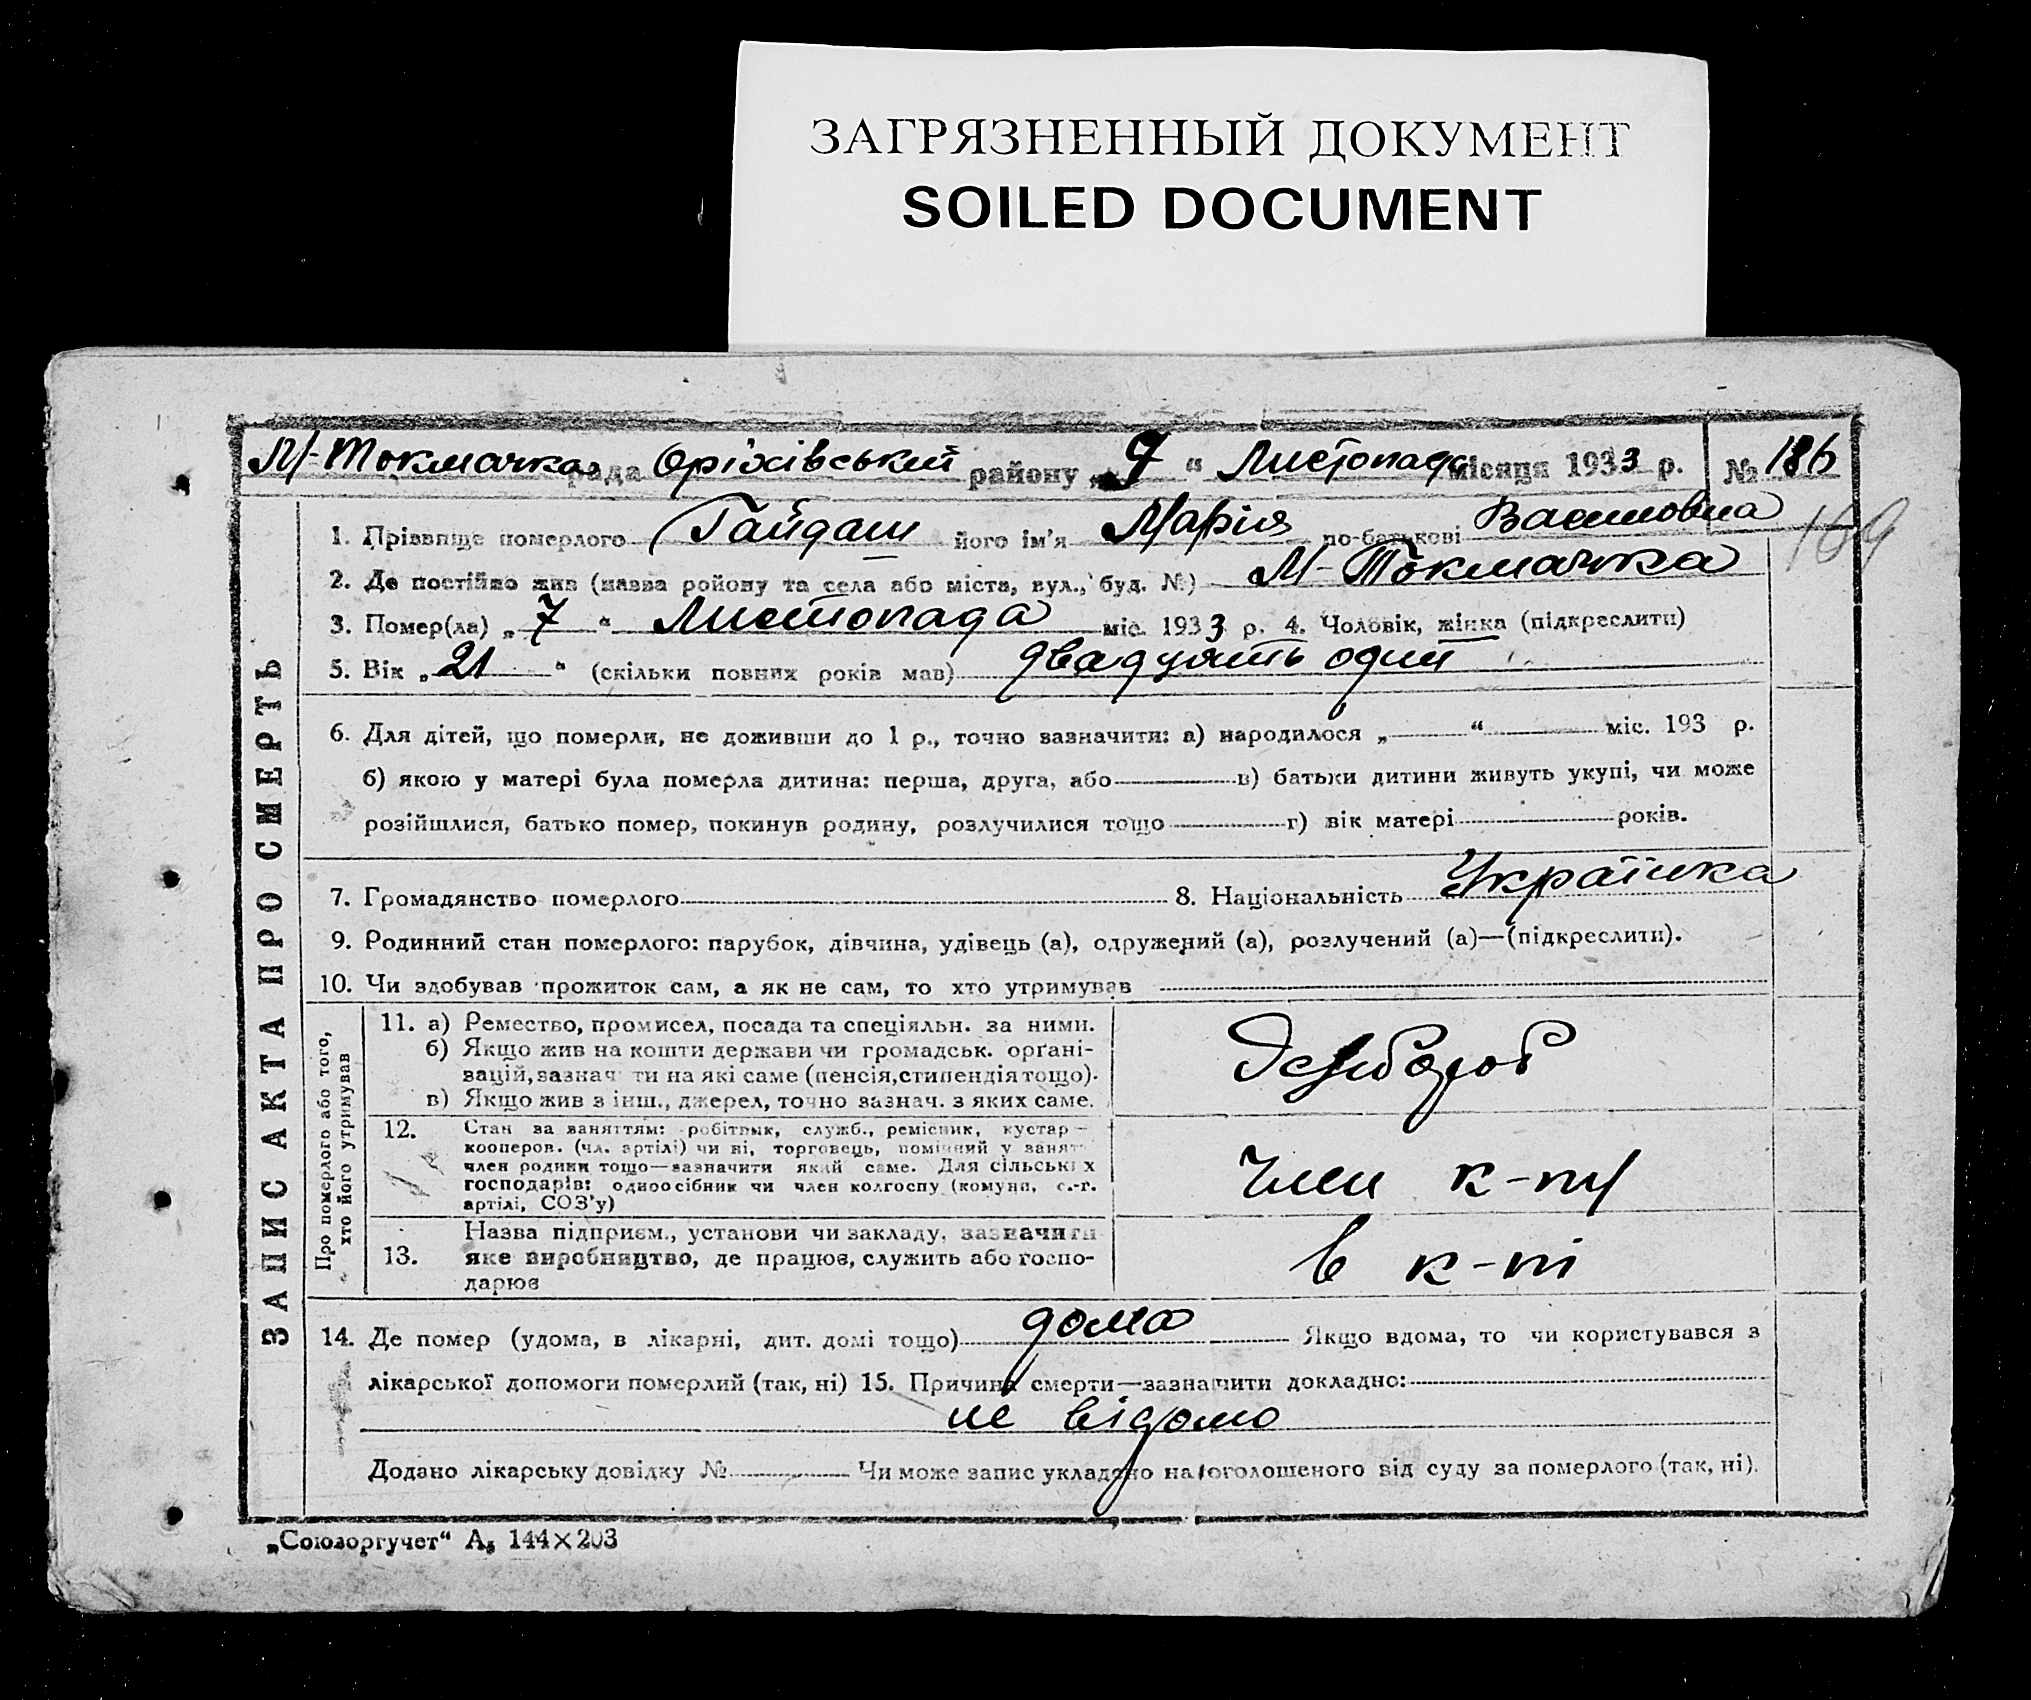 ЗАГРЯЗНЕННЫЙ ДОКУМЕНТ
SOILED DOCUMENT
М-Токмачка рада Оріхівський району „ 7 “ Листопада місяця 1933 р. № 186
169
ЗАПИС АКТА ПРО СМЕРТЬ
1. Прізвище померлого Гайдаш його ім'я Марія по-батькові Василовна
2. Де постійно жив (назва району та села або міста, вул., буд. №) М-Токмачка
3. Помер(ла) „ 7 “ Листопада міс. 1933 р. 4. Чоловік, жінка (підкреслити)
5. Вік „ 21 “ (скільки повних років мав) двадцять один
6. Для дітей, що померли, не доживши до 1 р., точно зазначити: а) народилося „ “ міс. 193 р.
б) якою у матері була померла дитина: перша, друга, або в) батьки дитини живуть укупі, чи може
розійшлися, батько помер, покинув родину, розлучилися тощо г) вік матері років.
7. Громадянство померлого 8. Національність Українка
9. Родинний стан померлого: парубок, дівчина, удівець (а), одружений (а), розлучений (а)—(підкреслити).
10. Чи здобував прожиток сам, а як не сам, то хто утримував
Про померлого або того,
хто його утримував
11. а) Ремество, промисел, посада та спеціяльн. за ними.
б) Якщо жив на кошти держави чи громадськ. орґані-
зацій, зазначити на які саме (пенсія, стипендія тощо).
в) Якщо жив з інш., джерел, точно зазнач. з яких саме.
12. Стан за заняттям: робітник, служб., ремісник, кустар—
кооперов. (чл. артілі) чи ні, торговець, помічний у занят.
член родини тощо—зазначити який саме. Для сільських
господарів: одноосібник чи член колгоспу (комуни, с.-г.
артілі, СОЗ'у)
член к-пу
13. Назва підприєм., установи чи закладу, зазначити
яке виробництво, де працює, служить або госпо-
дарює
в к-пі
14. Де помер (удома, в лікарні, дит. домі тощо) дома Якщо вдома, то чи користувався з
лікарської допомоги померлий (так, ні) 15. Причина смерти—зазначити докладно:
не відомо
Додано лікарську довідку № Чи може запис укладено на оголошеного від суду за померлого (так, ні).
„Союзоргучет“ А₅ 144×203